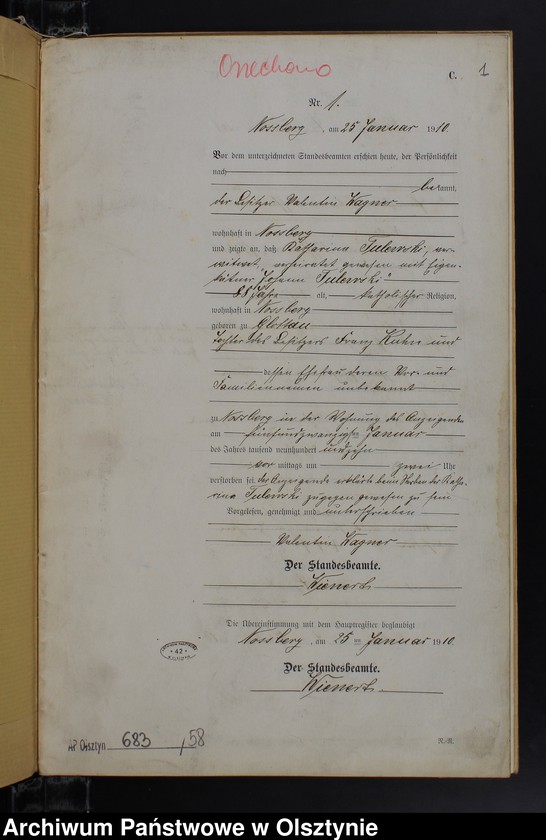 Orzechowo
C. 1
Nr. 1.
Nossberg, am 25 Januar 1910.
Vor dem unterzeichneten Standesbeamten erschien heute, der Persönlichkeit
nach
bekannt,
der Besitzer Valentin Wagner
wohnhaft in Nossberg
und zeigte an, daß Katharina Tulewski, ver-
witwet, verheiratet gewesen mit Eigen-
kätner Johann Tulewski
88 Jahre alt, katholischer Religion,
wohnhaft in Nossberg
geboren zu Glottau
Tochter des Besitzers Franz Kuhn und
dessen Ehefrau deren Vor- und
Familiennamen unbekannt
zu Nossberg in der Wohnung des Anzeigenden
am fünfundzwanzigsten Januar
des Jahres tausend neunhundert und zehn
vor mittags um zwei Uhr
verstorben sei, der Anzeigende erklärte beim Sterben der Katha-
rina Tulewski zugegen gewesen zu sein
Vorgelesen, genehmigt und unterschrieben
Valentin Wagner
Der Standesbeamte.
Wienert
Die Übereinstimmung mit dem Hauptregister beglaubigt
Nossberg, am 25 ten Januar 1910.
Der Standesbeamte.
Wienert
42
AP Olsztyn 683 / 58
Archiwum Państwowe w Olsztynie